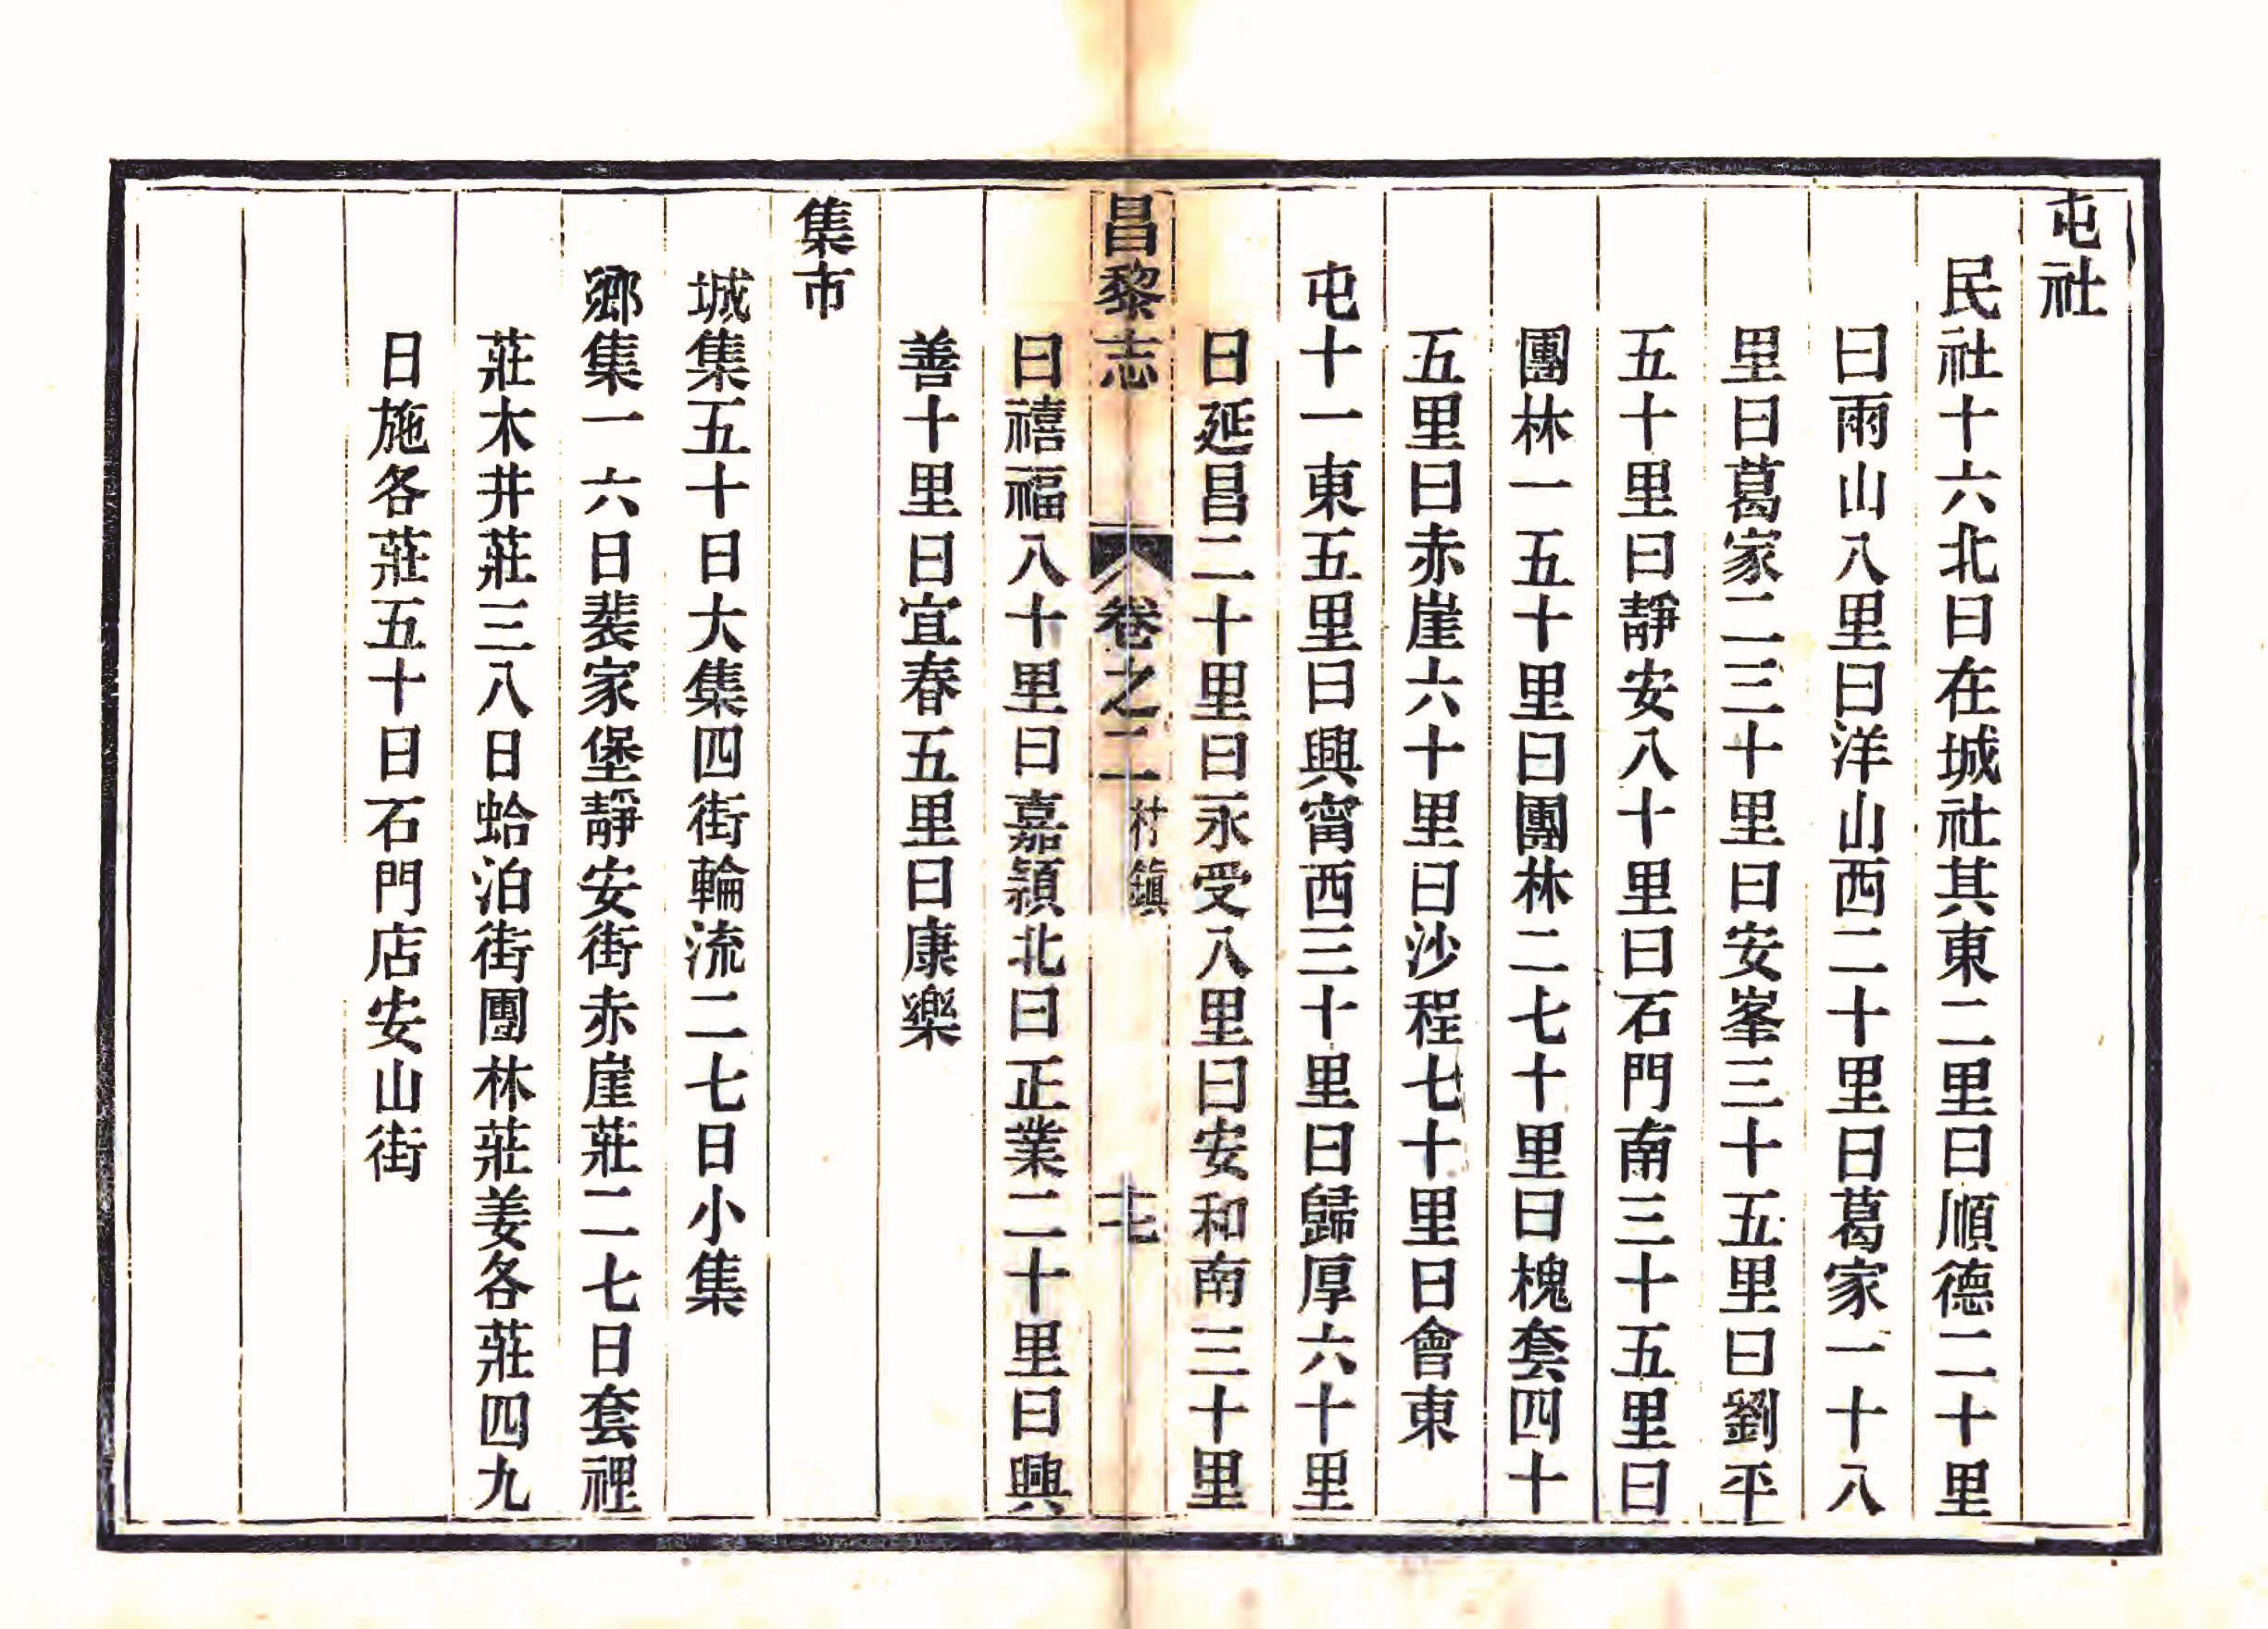 屯社
民社十六北曰在城社其東二里曰順德二十里
曰雨山八里曰洋山西二十里曰葛家一十八
里曰葛家二三十里曰安峯三十五里曰劉平
五十里曰靜安八十里曰石門南三十五里曰
團林一五十里曰團林二七十里曰槐套四十
五里曰赤崖六十里曰沙程七十里曰會東
屯十一東五里曰興甯西三十里曰歸厚六十里
曰延昌二十里曰永受八里曰安和南三十里
昌黎志
卷之二
村鎮
十七
曰禧福八十里曰嘉穎北曰正業二十里曰興
善十里曰宜春五里曰康樂
集市
城集五十日大集四街輪流二七日小集
鄉集一六日裴家堡靜安街赤崖莊二七日套裡
莊木井莊三八日蛤泊街團林莊姜各莊四九
日施各莊五十日石門店安山街